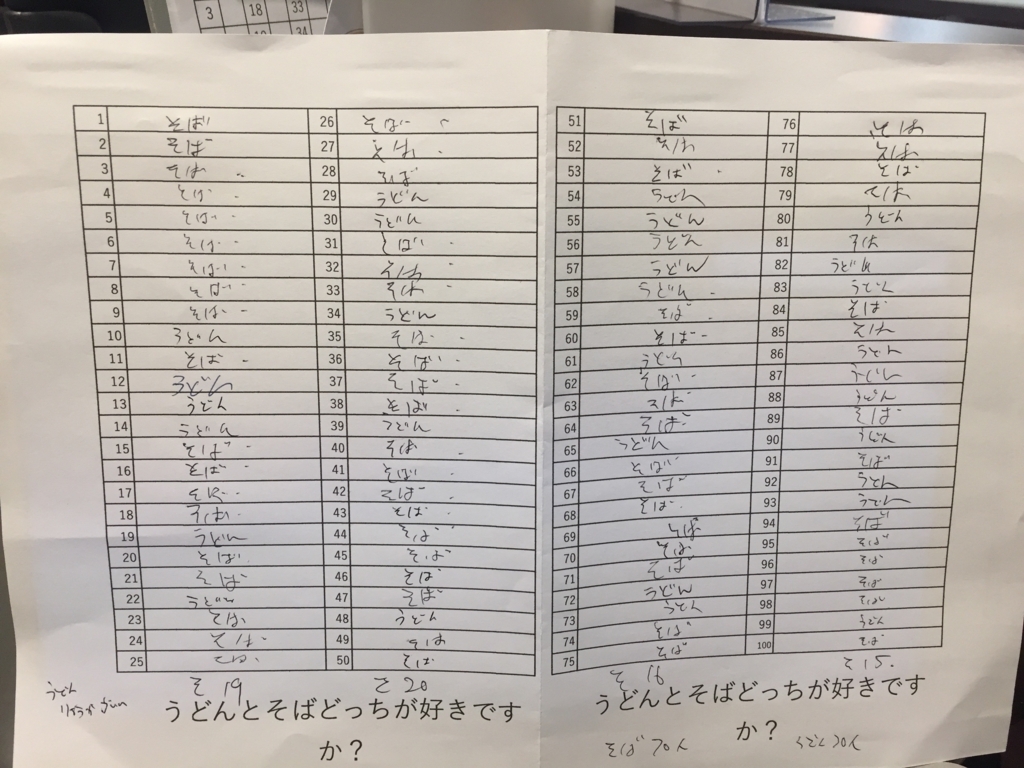 3 18 33
34
1 そば
2 そば
3 そば
4 そば
5 そば
6 そば
7 そばい
8 そば
9 そば
10 うどん
11 そば
12 うどん
13 うどん
14 うどん
15 そば
16 そば
17 そば
18 そば
19 うどん
20 そば
21 そば
22 うどん
23 そば
24 そば
25 そば
26 そば
27 そば
28 そば
29 うどん
30 うどん
31 そば
32 そば
33 そば
34 うどん
35 そば
36 そば
37 そば
38 そば
39 うどん
40 そば
41 そば
42 そば
43 そば
44 そば
45 そば
46 そば
47 そば
48 うどん
49 そば
50 そば
そ 19
そ 20
うどん
うどんとそばどっちが好きです
か？
51 そば
52 そば
53 そば
54 うどん
55 うどん
56 うどん
57 うどん
58 うどん
59 そば
60 そば
61 うどん
62 そば
63 そば
64 そば
65 うどん
66 そば
67 そば
68 そば
69 そば
70 そば
71 そば
72 うどん
73 うどん
74 そば
75 そば
76 そば
77 そば
78 そば
79 そば
80 うどん
81 そば
82 うどん
83 うどん
84 そば
85 そば
86 うどん
87 うどん
88 うどん
89 そば
90 うどん
91 そば
92 うどん
93 うどん
94 そば
95 そば
96 そば
97 そば
98 そば
99 うどん
100 そば
そ 16
そ 15.
うどんとそばどっちが好きです
か？
そば 70人
うどん 30人